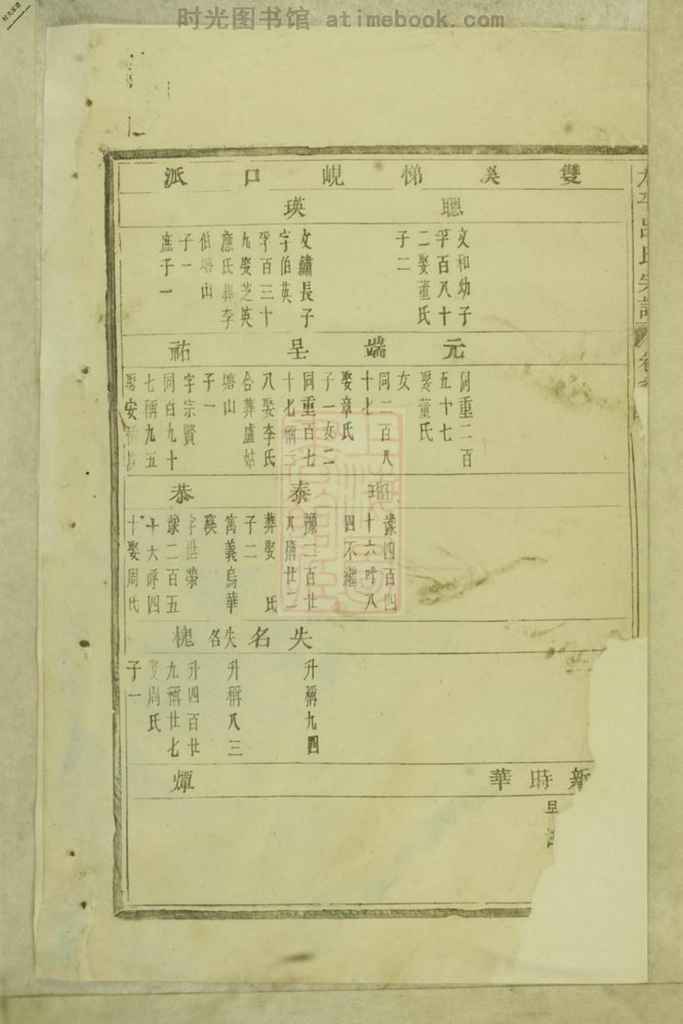 时光图书馆 atimebook.com
雙溪悌峴口派
聰
文和幼子
孚百八十
二娶董氏
子二
瑛
文繡長子
字伯英
孚百三十
九娶芝英
應氏葬李
山
子一
庶子一
元
同重二百
五十七
娶董氏
女
端
同二百八
十七
娶章氏
子一女二
呈
同重百七
十七稱
八娶李氏
合葬盧姑
塘山
子一
祐
字宗賢
同百九十
七稱九五
娶安
豫四百四
十六呼八
四不繼
泰
豫二百廿
八稱廿二
葬娶 氏
子二
寓義烏華
溪
恭
字世榮
豫二百五
十大呼四
十娶周氏
失名
升稱九四
失名
升稱八三
槐
升四百廿
九稱廿七
娶周氏
子一
新
時
華
煇